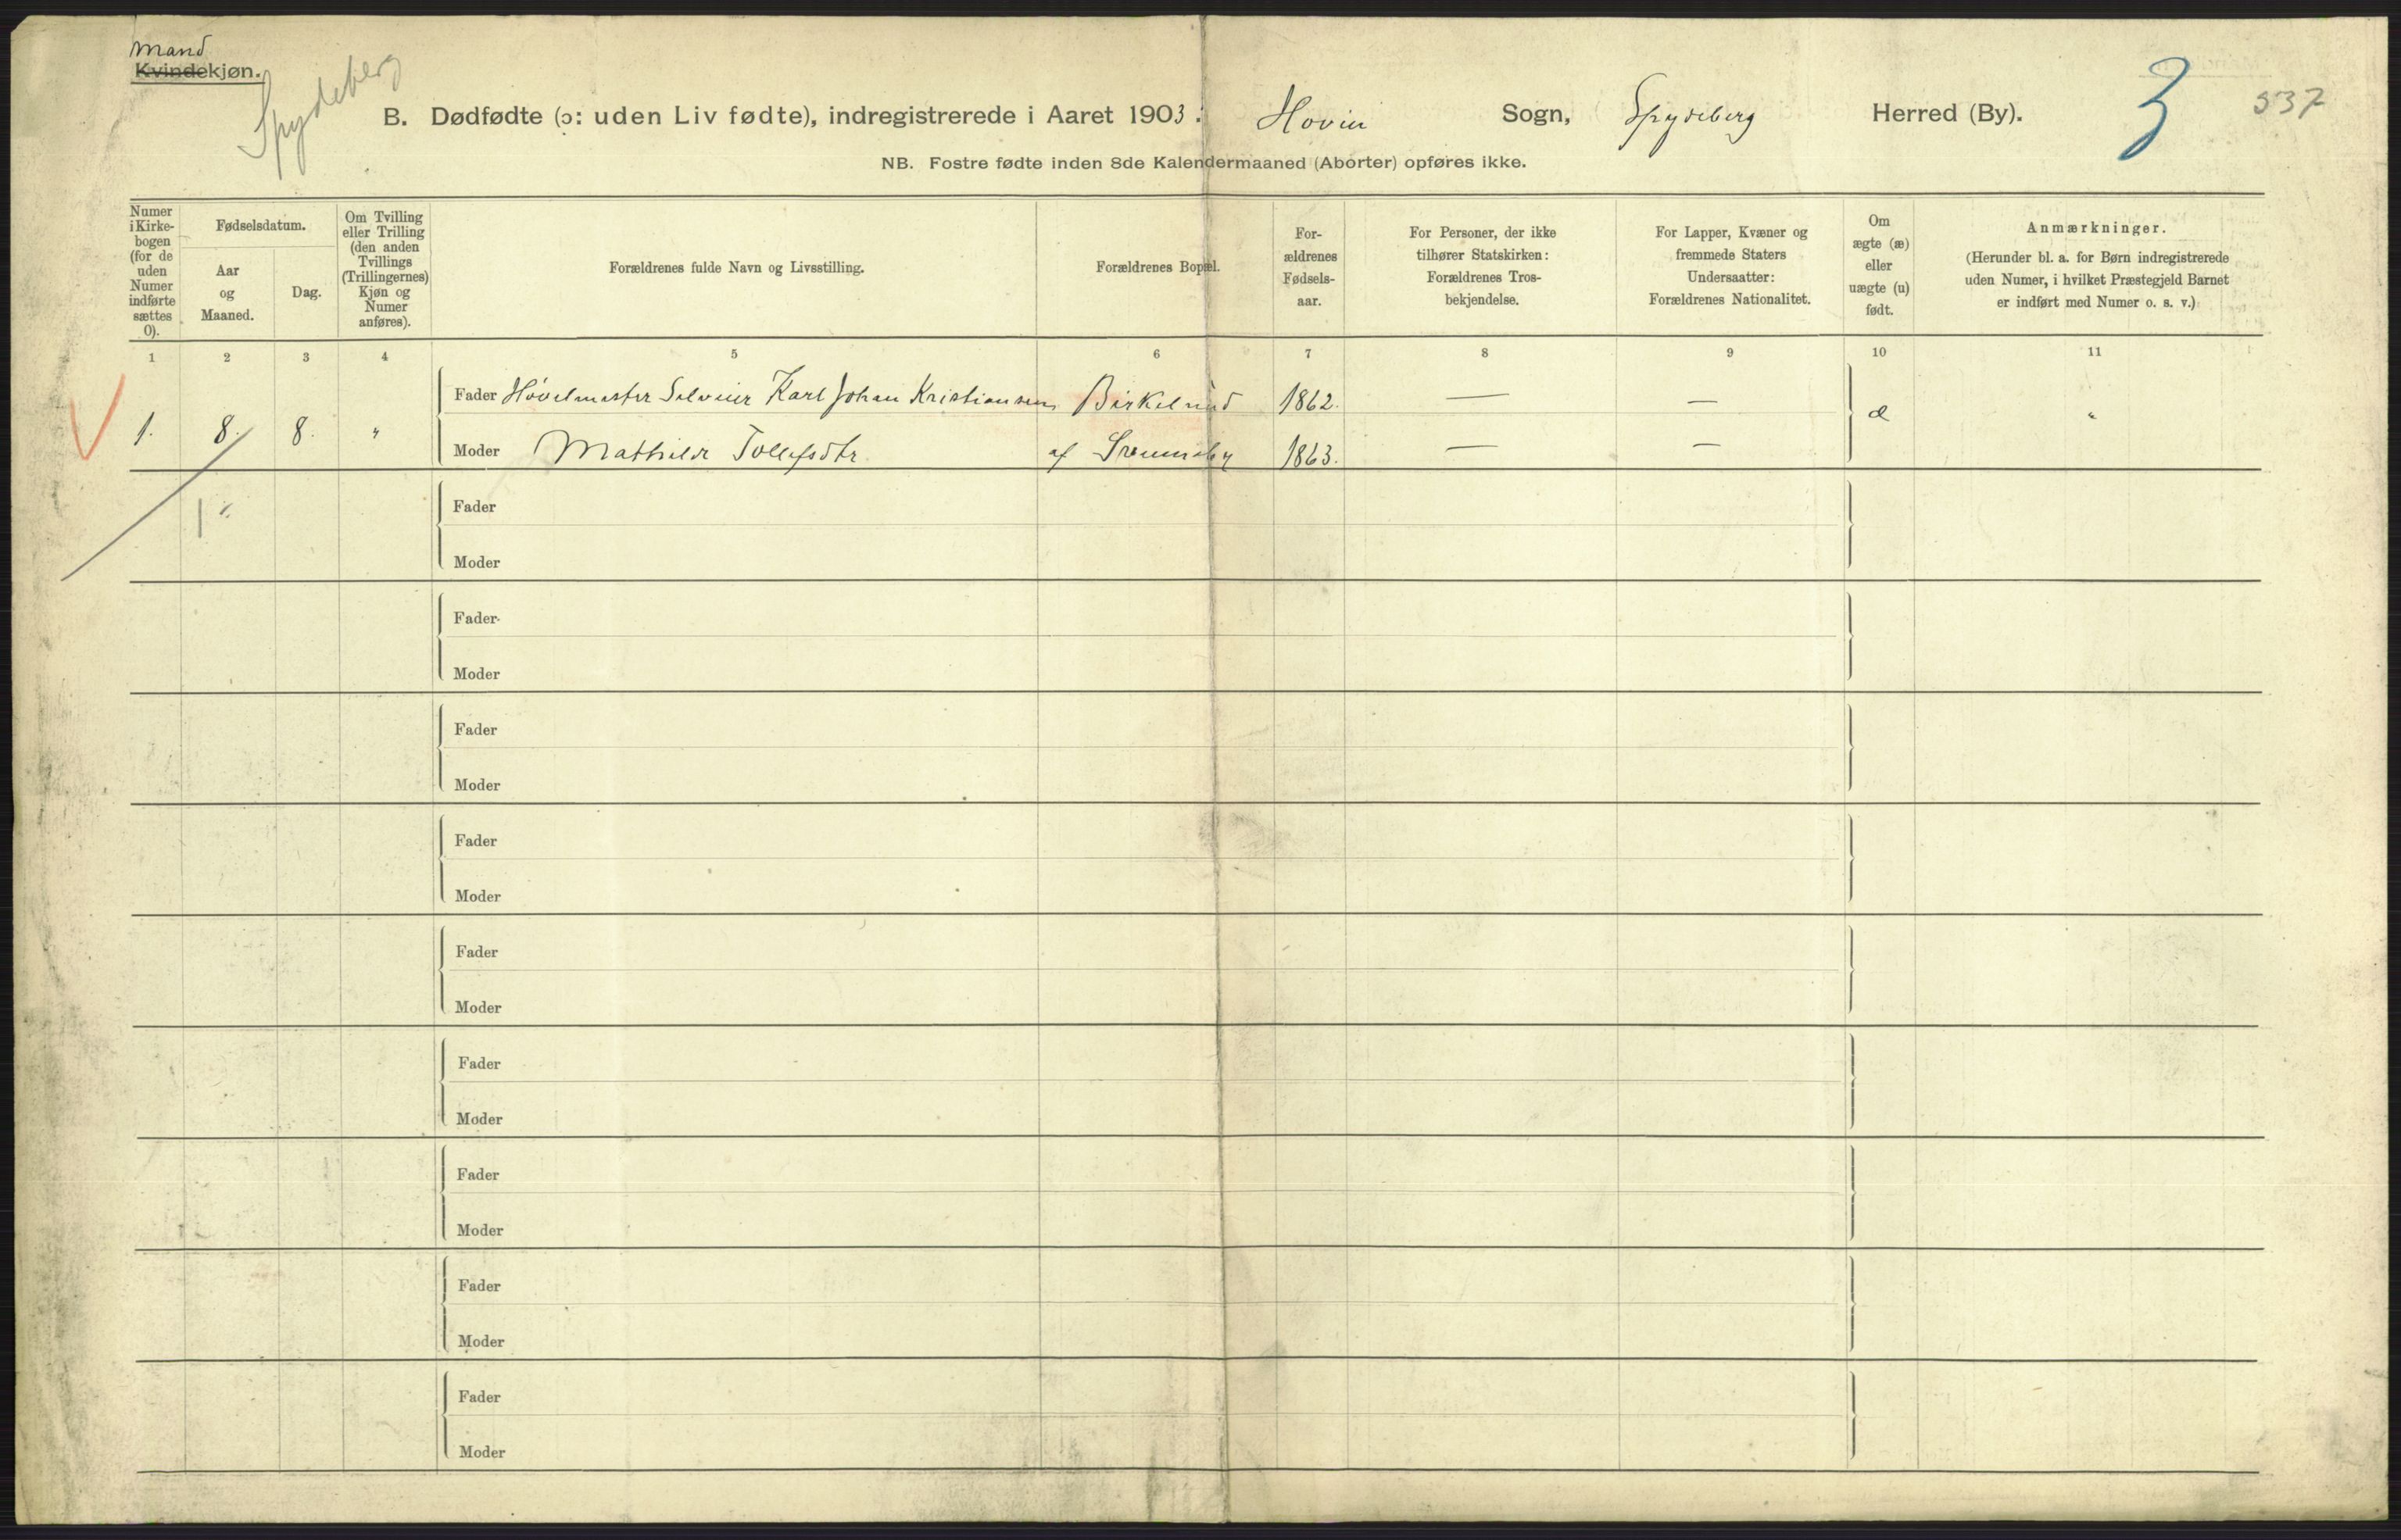 Mand
Kvindekjøn.
Spydeberg
B. Dødfødte (ɔ: uden Liv fødte), indregistrerede i Aaret 1903: Hovin Sogn, Spydeberg Herred (By).
3
537
NB. Fostre fødte inden 8de Kalendermaaned (Aborter) opføres ikke.
Numer
i Kirke-
bogen
(for de
uden
Numer
indførte
sættes
0).
Fødselsdatum.
Aar
og
Maaned.
Dag.
Om Tvilling
eller Trilling
(den anden
Tvillings
(Trillingernes)
Kjøn og
Numer
anføres).
Forældrenes fulde Navn og Livsstilling.
Forældrenes Bopæl.
For-
ældrenes
Fødsels-
aar.
For Personer, der ikke
tilhører Statskirken:
Forældrenes Tros-
bekjendelse.
For Lapper, Kvæner og
fremmede Staters
Undersaatter:
Forældrenes Nationalitet.
Om
ægte (æ)
eller
uægte (u)
født.
Anmærkninger.
(Herunder bl. a. for Børn indregistrerede
uden Numer, i hvilket Præstegjeld Barnet
er indført med Numer o. s. v.)
1 2 3 4 5 6 7 8 9 10 11
Fader Høvelmester Karl Johan Kristiansen Birkelund 1862. — —
1. 8. 8. " æ "
Moder Mathilde Tollefsdtr af 1863. — —
1
Fader
Moder
Fader
Moder
Fader
Moder
Fader
Moder
Fader
Moder
Fader
Moder
Fader
Moder
Fader
Moder
Fader
Moder